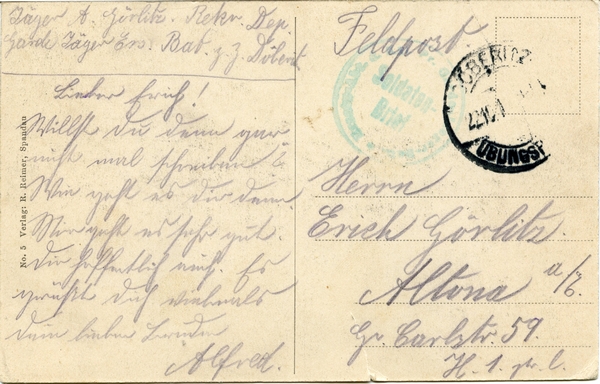 Jäger A. Görlitz. Rekr. Dep.
Garde Jäger Ers. Bat. z. Z. Döberitz
Lieber Erich!
Willst du denn gar
nicht mal schreiben?
Wie geht es dir denn
Mir geht es sehr gut.
Dir hoffentlich auch. Es
grüßt dich vielmals
dein lieber Bruder
Alfred.
No. 5 Verlag: R. Reimer, Spandau
Feldpost
Soldaten-
Brief
DÖBERITZ
ÜBUNGSP
Herrn
Erich Görlitz.
Altona a/E.
Gr. Carlstr. 59.
H. 1. pt. l.